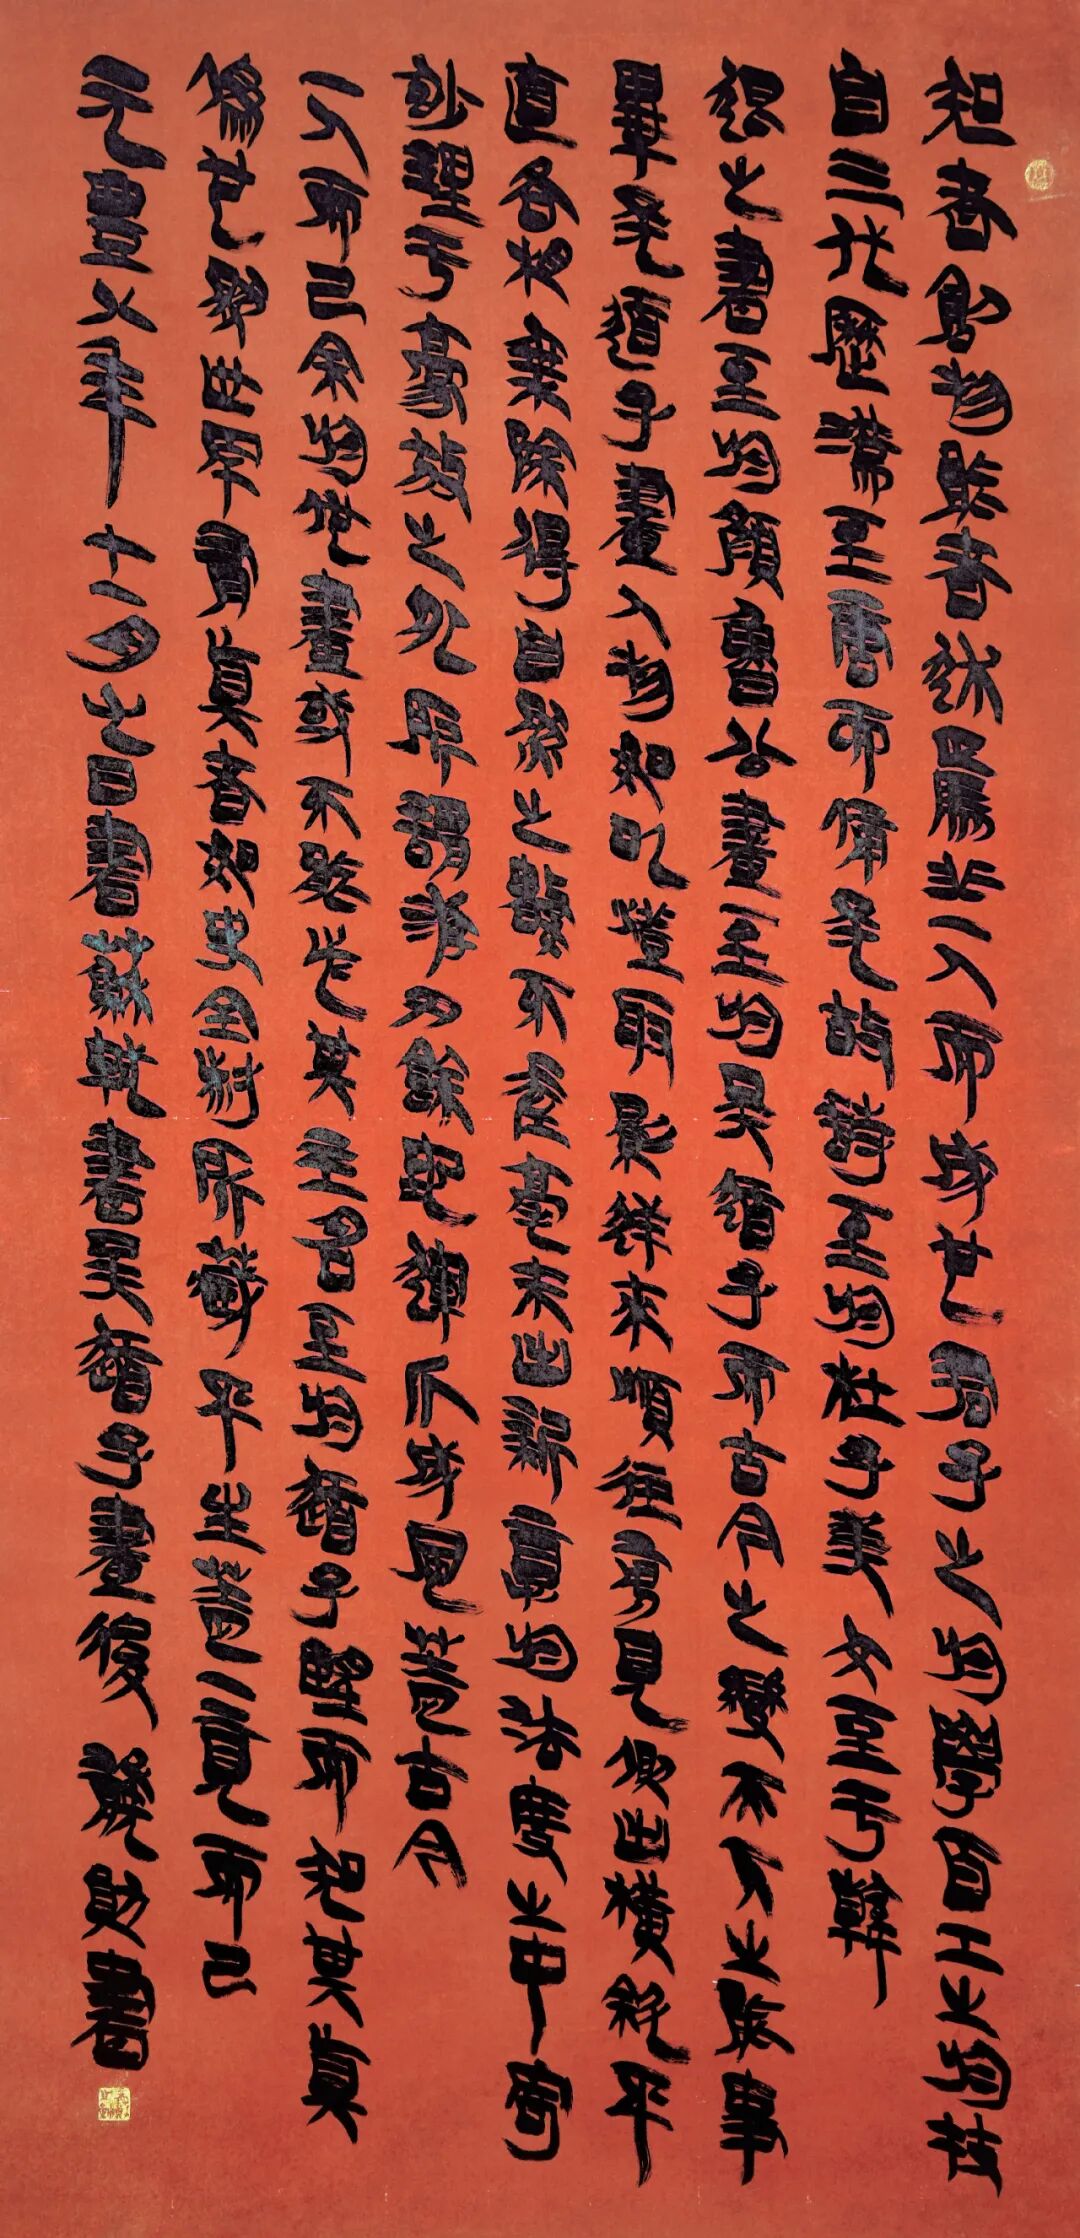 知者創物能者述焉非一人而成也君子之於學百工之於技
自三代歷漢至唐而備矣故詩至於杜子美文至於韓
退之書至於顏魯公畫至於吳道子而古今之變天下之能事
畢矣道子畫人物如以燈取影逆來順往旁見側出橫斜平
直各相乘除得自然之數不差毫末出新意於法度之中寄
妙理于豪放之外所謂游刃餘地運斤成風蓋古今
一人而已余於他畫或不能必其主名至於道子望而知其真
偽也然世罕有真者如史全叔所藏平生蓋一二見而已
元豐八年十一月七日書蘇軾書吳道子畫後 書